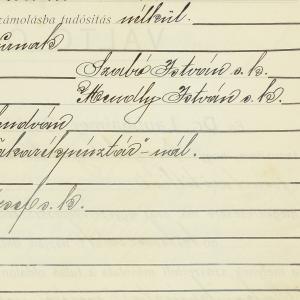 számolásba tudósítás nélkül.
úrnak
Szabó István s. k.
Mendly István s. k.
takarékpénztár"-nál.
József s. k.